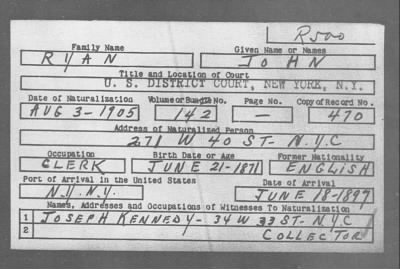 R500
Family Name Given Name or Names
RYAN JOHN
Title and Location of Court
U. S. DISTRICT COURT, NEW YORK, N.Y.
Date of Naturalization Volume or Bundle No. Page No. Copy of Record No.
AUG 3-1905 142 — 470
Address of Naturalized Person
271 W 40 ST- N.Y.C
Occupation Birth Date or Age Former Nationality
CLERK JUNE 21-1871 ENGLISH
Port of Arrival in the United States Date of Arrival
N.Y. N.Y. JUNE 18-1897
Names, Addresses and Occupations of Witnesses To Naturalization
1 JOSEPH KENNEDY- 34 W 33 ST- N.Y.C
2 COLLECTOR